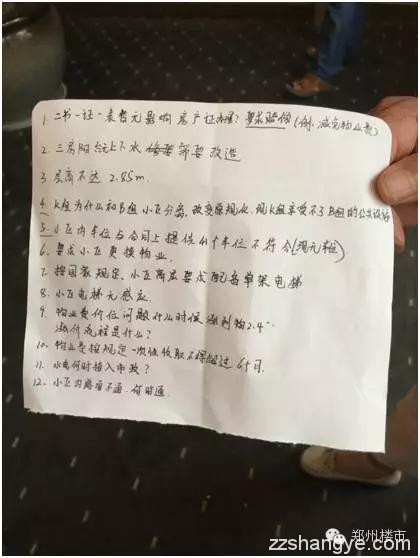 1. 二书一证一表暂无影响房产证办理? 要求赔偿(例.减免物业费)
2. 三房阳台无上下水 需要改造
3. 层高不达 2.85m.
4. K座为什么和B组小区分离,改变原规化,现K座享受不了B组的公共设施
5. 小区内车位与合同上提供41个车位不符合(现无车位)
6. 要求小区更换物业.
7. 按国家规定,小区高层要求配备单架电梯
8. 小区电梯无感应.
9. 物业费价位问题什么时候涨到物2.4
涨价流程是什么?
10. 物业费按规定一次性收取不得超过6个月.
11. 水电何时接入市政?
12. 小区内暖气不通.何时通
郑州楼市
zzshangye.com